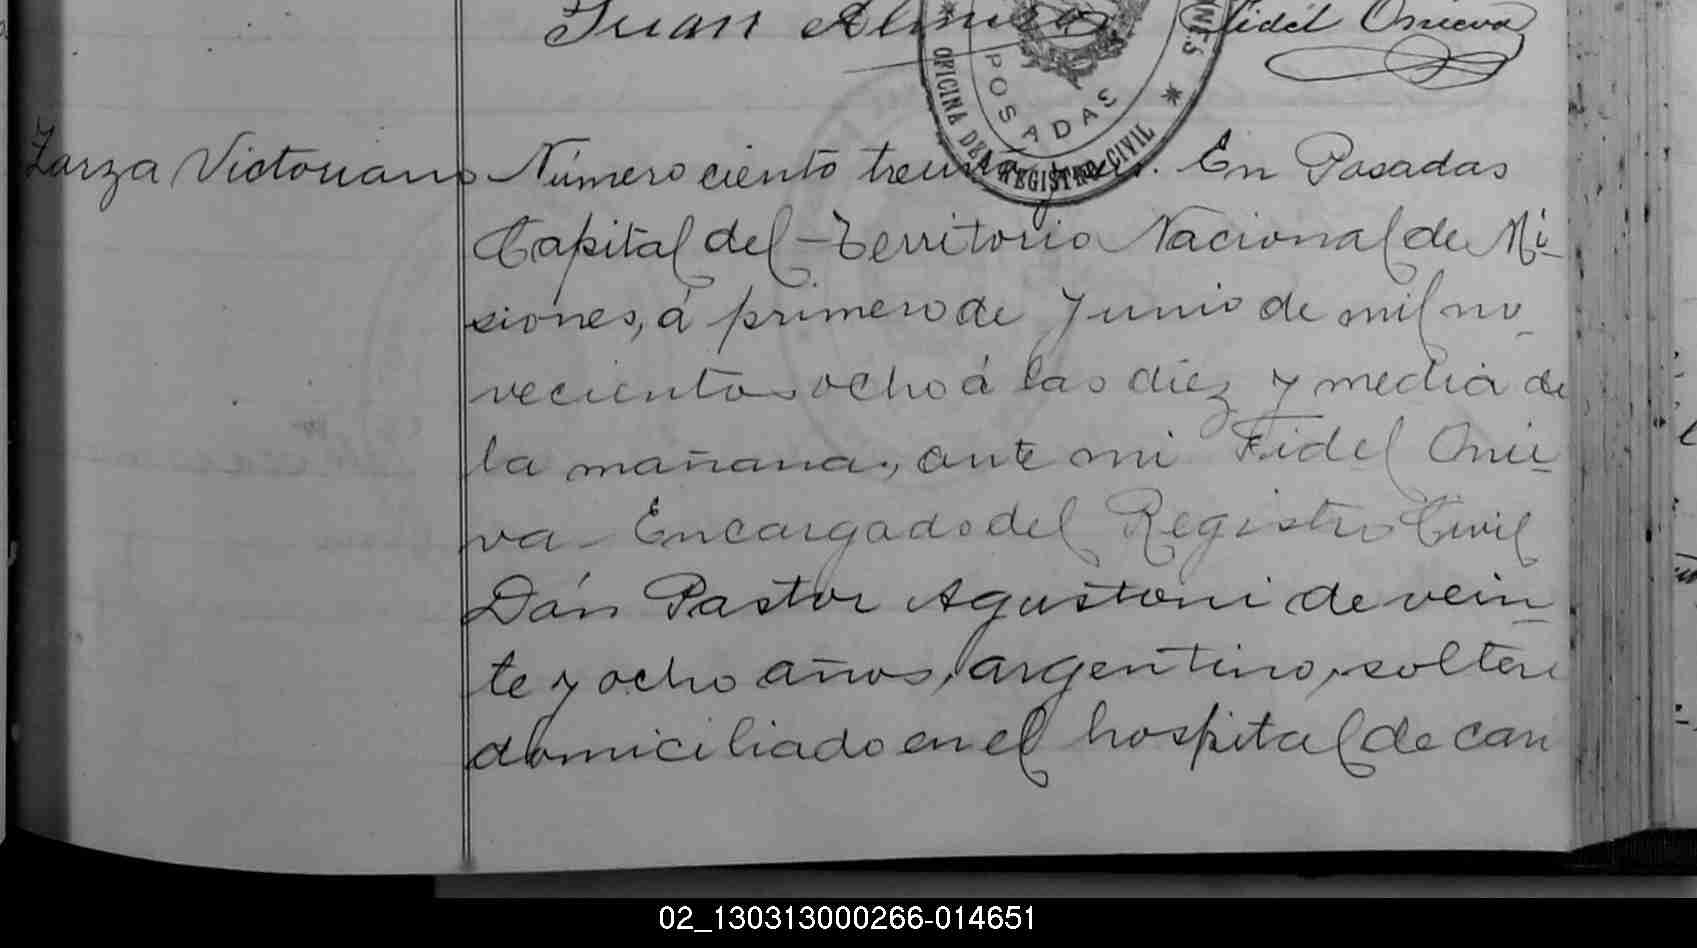 Juan Fidel Onieva
MISIONES
POSADAS
OFICINA DEL REGISTRO CIVIL
Zarza Victoriano Número ciento treinta y . En Posadas
Capital del Territorio Nacional de Mi-
siones, á primero de Junio de mil no-
vecientos ocho á las diez y media de
la mañana, ante mi Fidel Onie-
va Encargado del Registro Civil
Dón Pastor Agustoni de vein-
te y ocho años, argentino, soltero
domiciliado en el hospital de cari
02_130313000266-014651